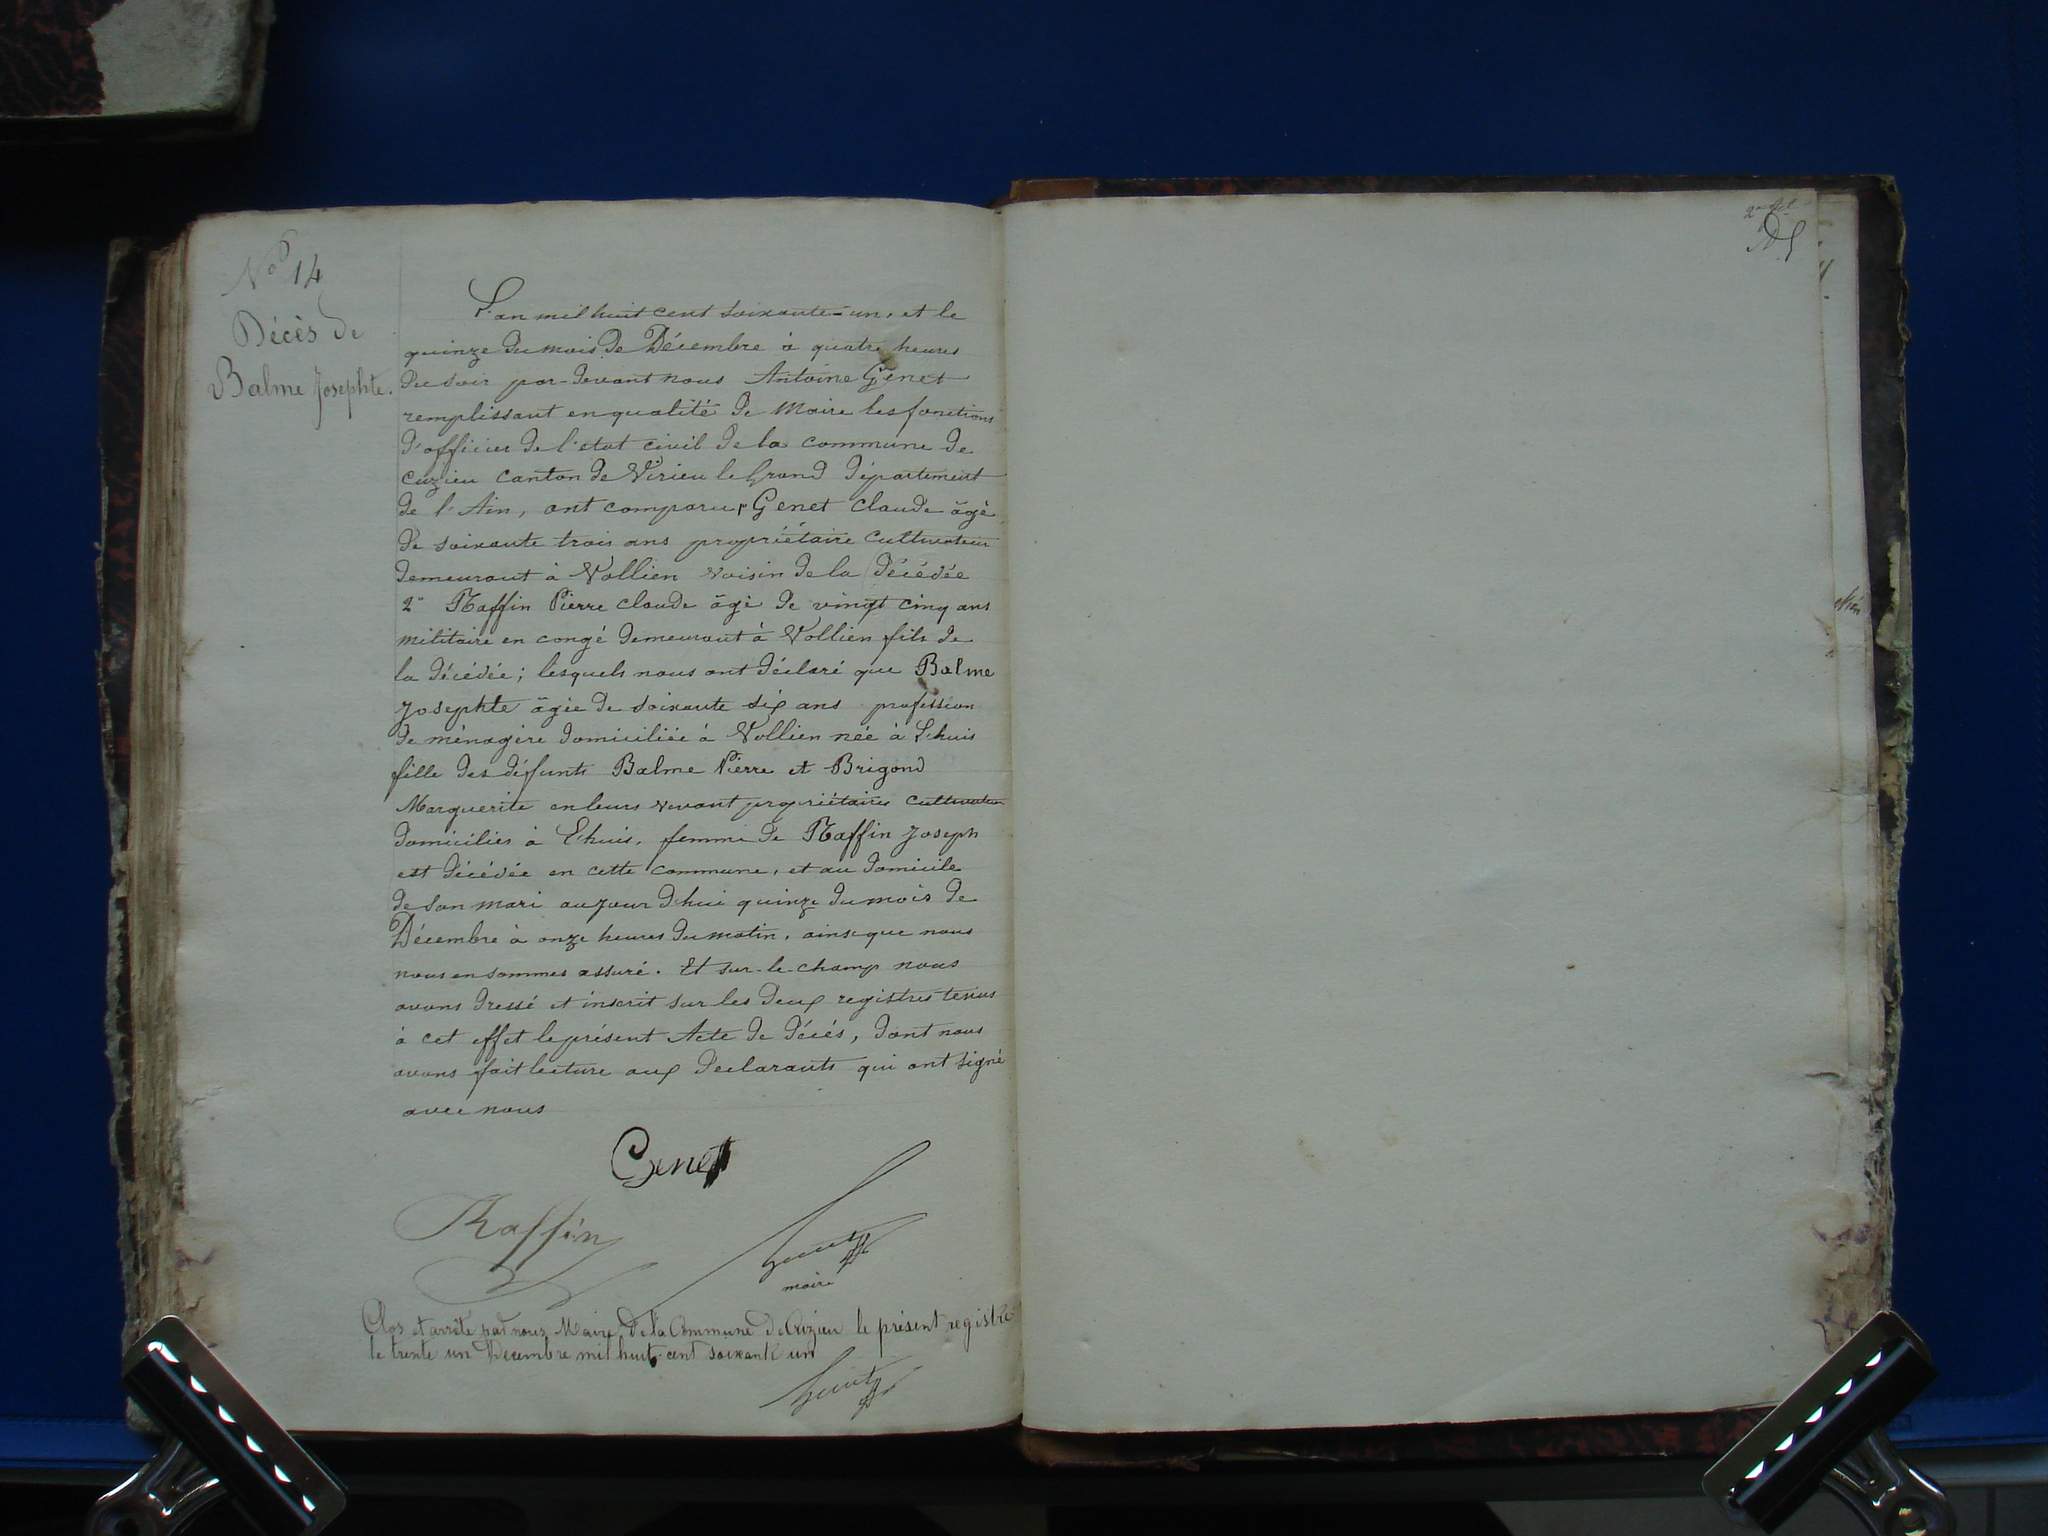 No 14
Décès de
Balme Josephte.
L'an mil huit cent soixante-un, et le
quinze du mois de Décembre à quatre heures
du soir par-devant nous Antoine Genet
remplissant en qualité de Maire les fonctions
d'officier de l'état civil de la commune de
Cuzieu canton de Virieu le Grand département
de l'Ain, ont comparu, Genet Claude âgé
de soixante trois ans propriétaire cultivateur
demeurant à Vollien voisin de la décédée
2° Raffin Pierre Claude âgé de vingt cinq ans
militaire en congé demeurant à Vollien fils de
la décédée; lesquels nous ont déclaré que Balme
Josephte âgée de soixante six ans profession
de ménagère domiciliée à Vollien née à Lhuis
fille des défunts Balme Pierre et Brigond
Marguerite en leurs vivant propriétaires cultivateurs
domiciliés à Lhuis, femme de Raffin Joseph
est décédée en cette commune, et au domicile
de son mari aujourd'hui quinze du mois de
Décembre à onze heures du matin, ainsi que nous
nous en sommes assuré. Et sur-le-champ nous
avons dressé et inscrit sur les deux registres tenus
à cet effet le présent Acte de décés, dont nous
avons fait lecture aux declarants qui ont signé
avec nous
Genet
Raffin
Genet
maire
Clos et arrêté par nous Maire de la Commune de Cuzieu le présent registre
le trente un Décembre mil huit-cent soixante un
Genet